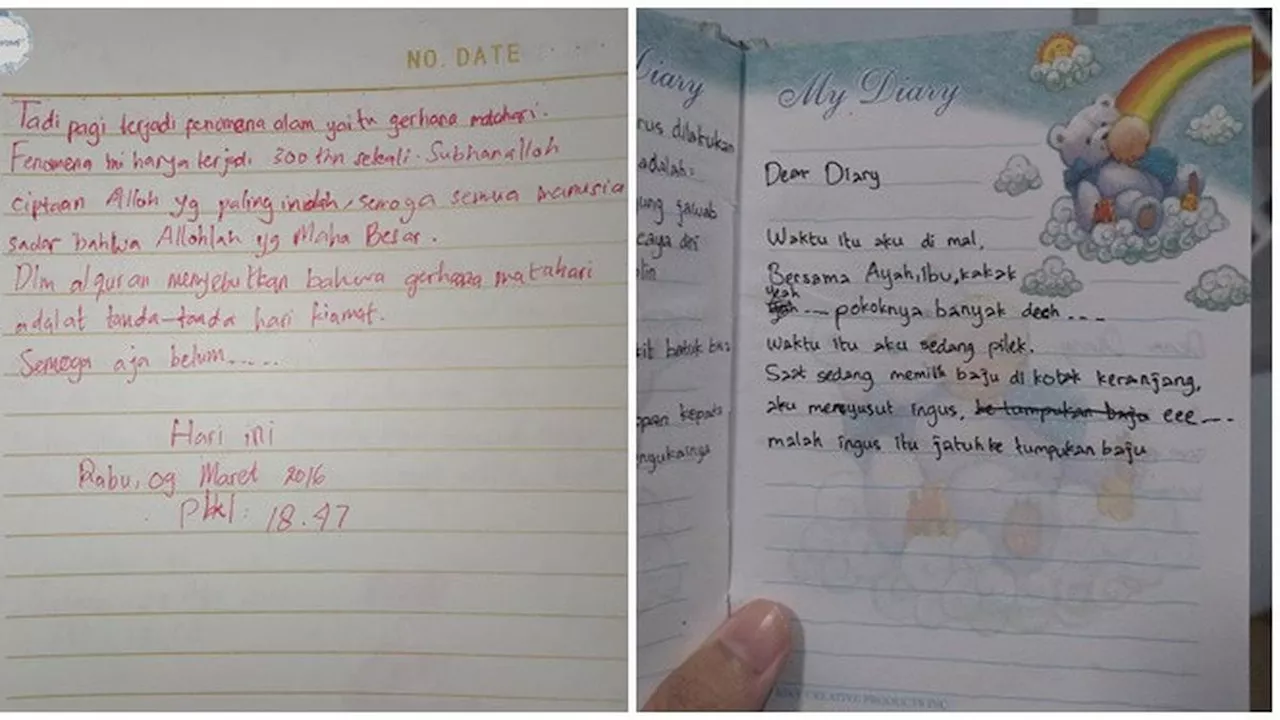 NO. DATE
Tadi pagi terjadi fenomena alam yaitu gerhana matahari.
Fenomena ini hanya terjadi 300 thn sekali. Subhanalloh
ciptaan Alloh yg paling indah, semoga semua manusia
sadar bahwa Allohlah yg Maha Besar.
Dlm alquran menyebutkan bahwa gerhana matahari
adalat tanda-tanda hari kiamat.
Semoga aja belum.....
Hari ini
Rabu, 09 Maret 2016
Pkl : 18.47
Diary
rus dilakukan
adalah:
ung jawab
caya diri
lin
kit batuk
pan kepada
My Diary
Dear Diary
Waktu itu aku di mal,
Bersama Ayah, Ibu, kakak
yeah ... pokoknya banyak dech ...
Waktu itu aku sedang pilek.
Saat sedang memilih baju di kotak keranjang,
aku menyusut ingus, ke tumpukan baju eee ...
malah ingus itu jatuh ke tumpukan baju